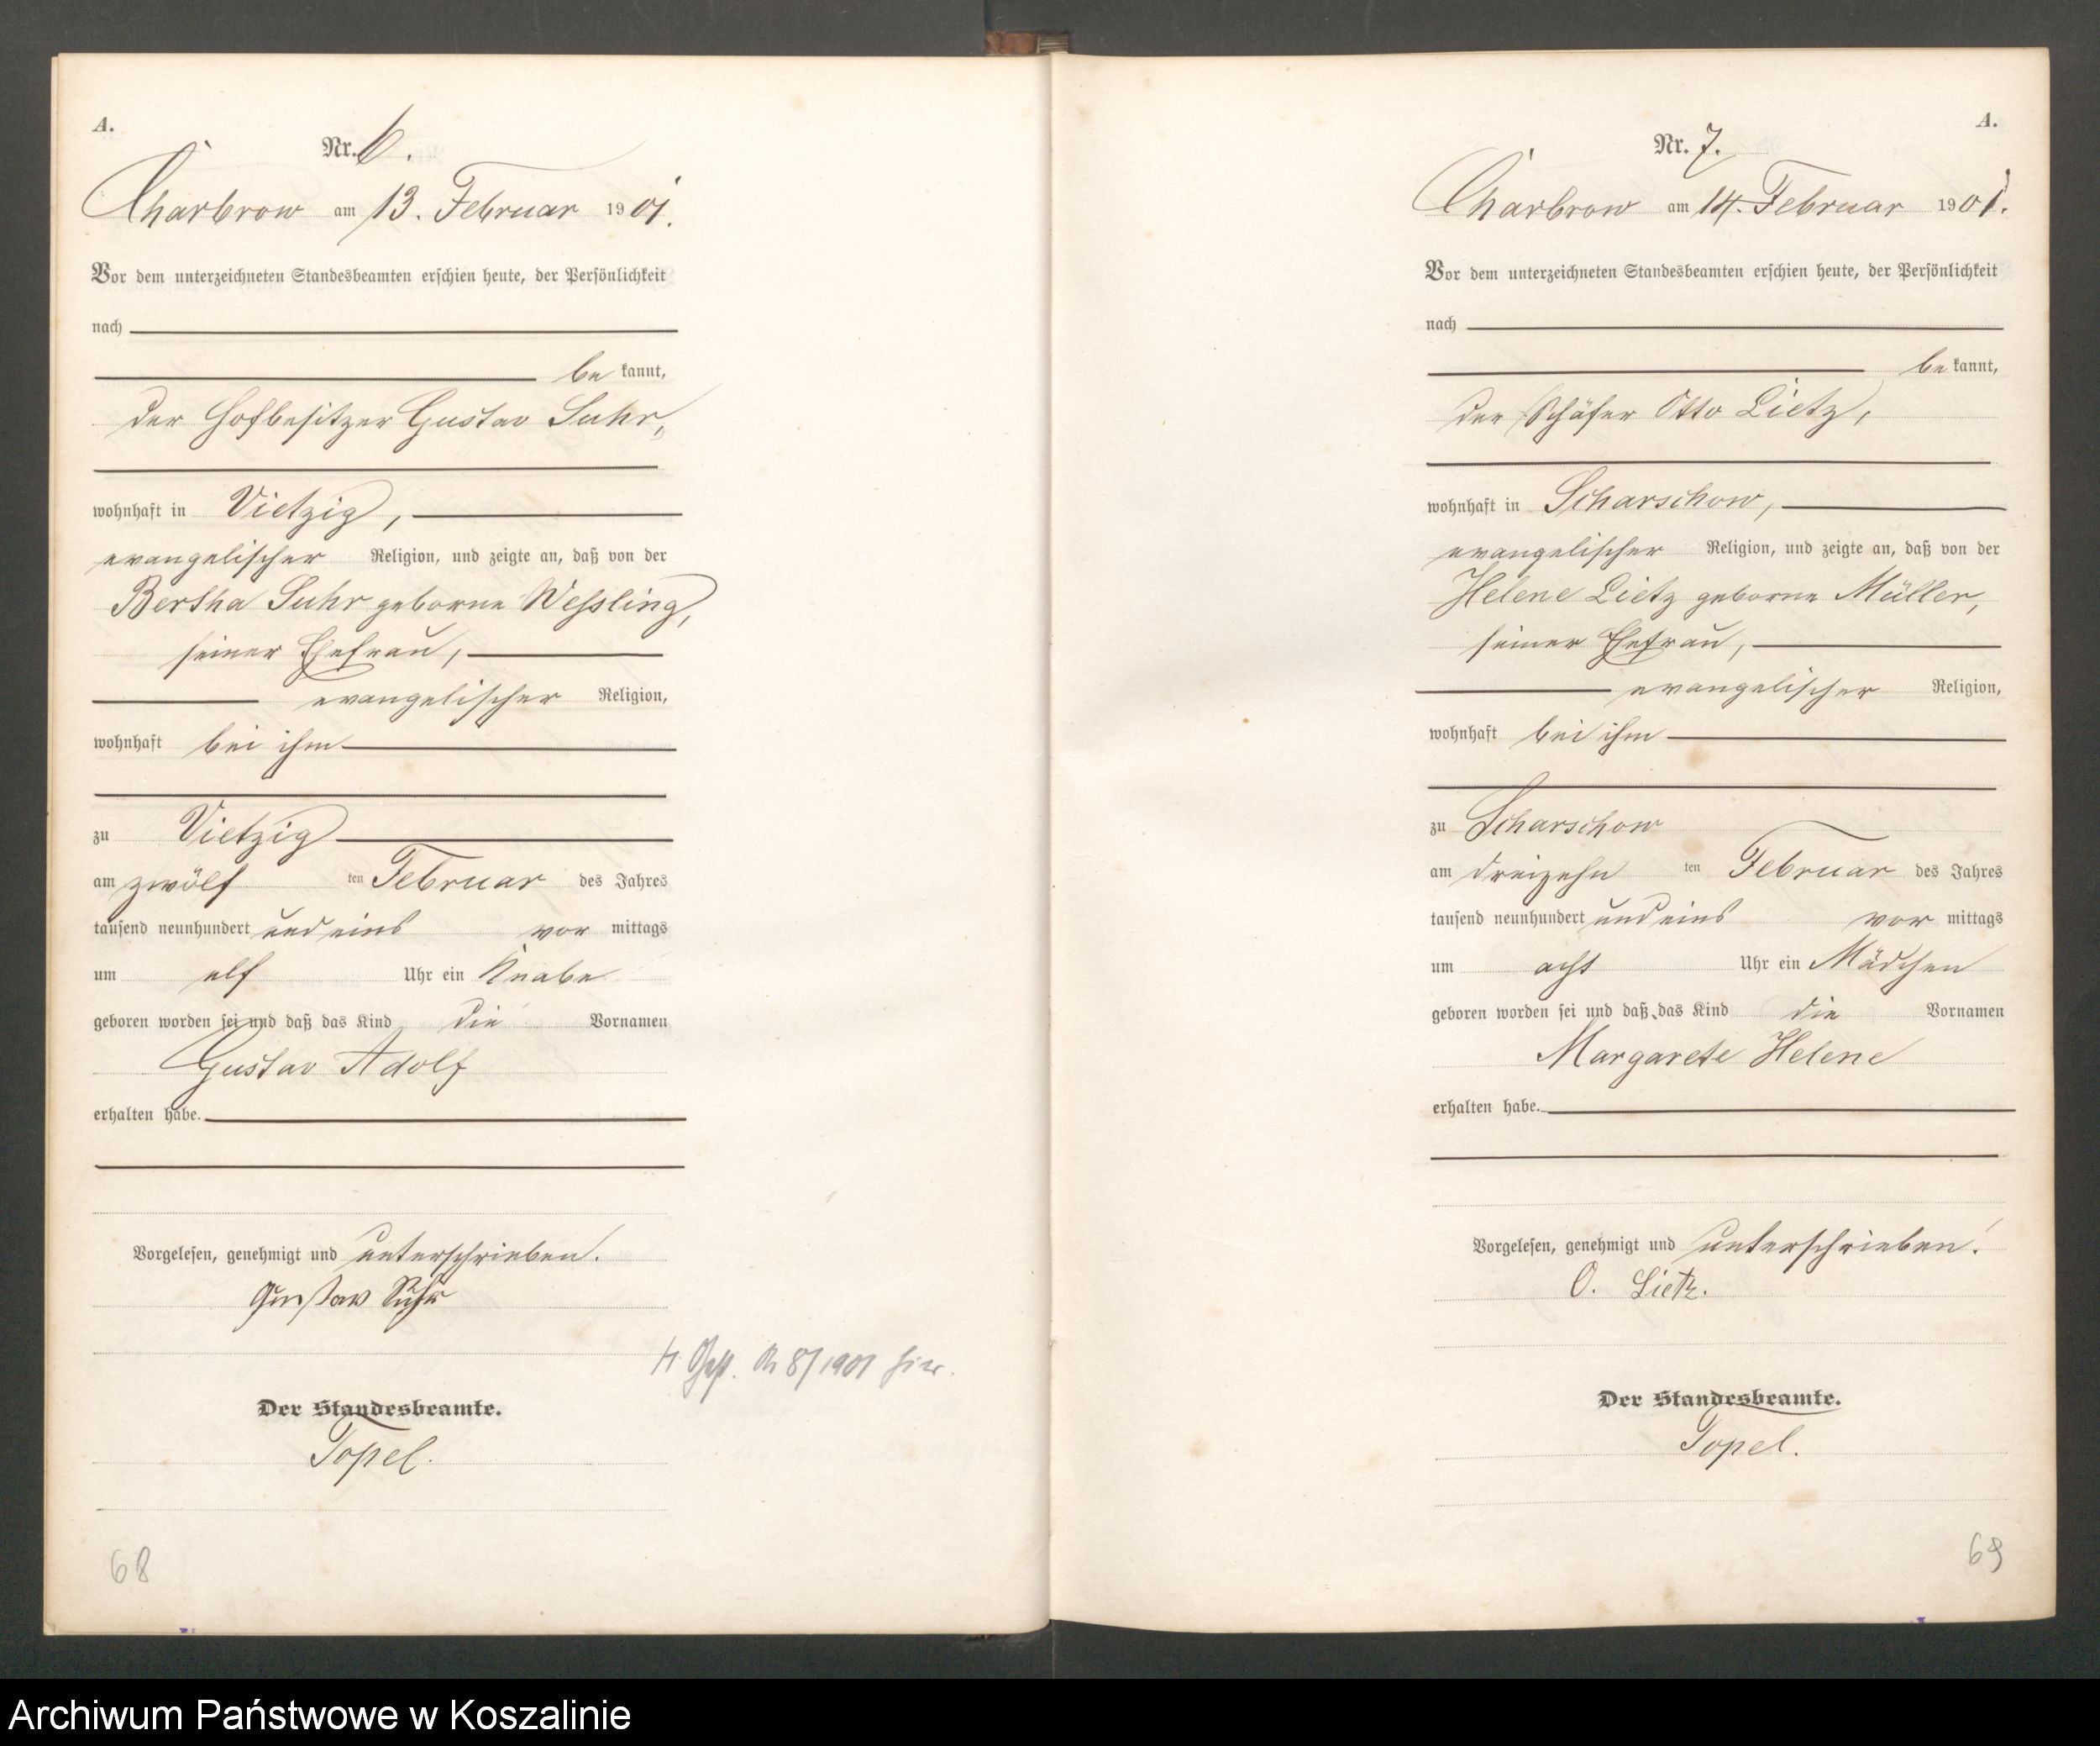 A.
Nr. 6.
Charbrow am 13. Februar 1901.
Vor dem unterzeichneten Standesbeamten erschien heute, der Persönlichkeit
nach
be kannt,
der Hofbesitzer Gustav Suhr,
wohnhaft in Vietzig,
evangelischer Religion, und zeigte an, daß von der
Bertha Suhr geborne Weßling,
seiner Ehefrau,
evangelischer Religion,
wohnhaft bei ihm
zu Vietzig
am zwölf ten Februar des Jahres
tausend neunhundert und eins vor mittags
um elf Uhr ein Knabe
geboren worden sei und daß das Kind die Vornamen
Gustav Adolf
erhalten habe.
Vorgelesen, genehmigt und unterschrieben.
Gustav Suhr
8/1901 hier.
Der Standesbeamte.
Topel.
68
A.
Nr. 7.
Charbrow am 14. Februar 1901.
Vor dem unterzeichneten Standesbeamten erschien heute, der Persönlichkeit
nach
be kannt,
der Schäfer Otto Lietz,
wohnhaft in Scharschow,
evangelischer Religion, und zeigte an, daß von der
Helene Lietz geborne Müller,
seiner Ehefrau,
evangelischer Religion,
wohnhaft bei ihm
zu Scharschow
am dreizehn ten Februar des Jahres
tausend neunhundert und eins vor mittags
um acht Uhr ein Mädchen
geboren worden sei und daß das Kind die Vornamen
Margarete Helene
erhalten habe.
Vorgelesen, genehmigt und unterschrieben.
O. Lietz.
Der Standesbeamte.
Topel.
69
Archiwum Państwowe w Koszalinie